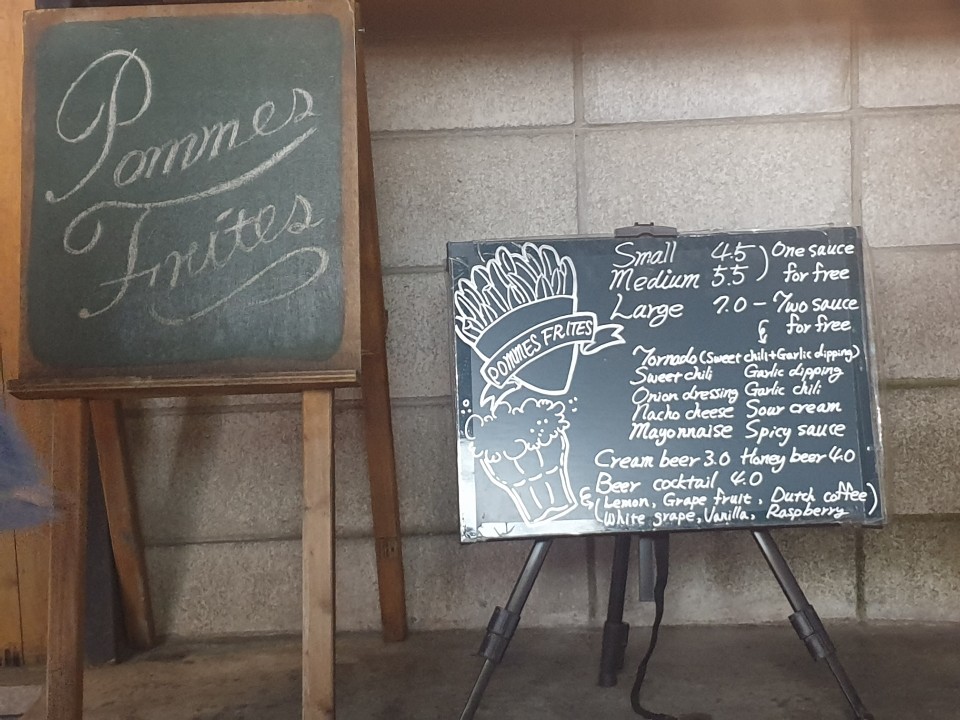 Pommes
Frites
POMMES FRITES
Small 4.5 ) One sauce
Medium 5.5 for free
Large 7.0 - Two sauce
for free
Tornado (Sweet chili+Garlic dipping)
Sweet chili Garlic dipping
Onion dressing Garlic chili
Nacho cheese Sour cream
Mayonnaise Spicy sauce
Cream beer 3.0 Honey beer 4.0
Beer cocktail 4.0
(Lemon, Grape fruit, Dutch coffee)
White grape, Vanilla, Raspberry